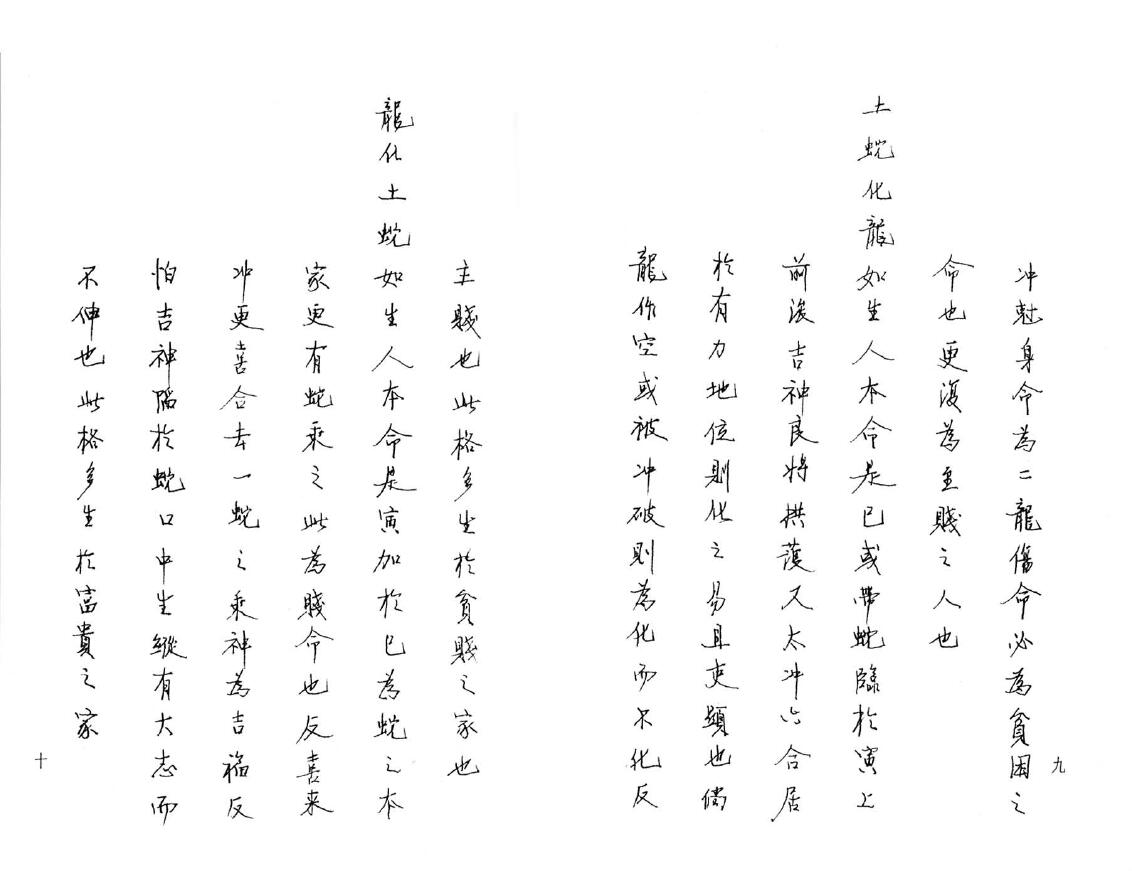 冲尅身命為二龍傷命必為貧困之
命也更復為至賤之人也
土蛇化龍如生人本命是巳或帶蛇臨於寅上
前後吉神良將拱護又太冲六合居
於有力地位則化之易且更顯也倘
龍作空或被冲破則為化而不化反
九
主賤也此格多生於貧賤之家也
龍化土蛇如生人本命是寅加於巳為蛇之本
家更有蛇乘之此為賤命也反喜来
冲更喜合去一蛇之乘神為吉福反
怕吉神陷於蛇口中生縱有大志而
不伸也此格多生於富貴之家
十